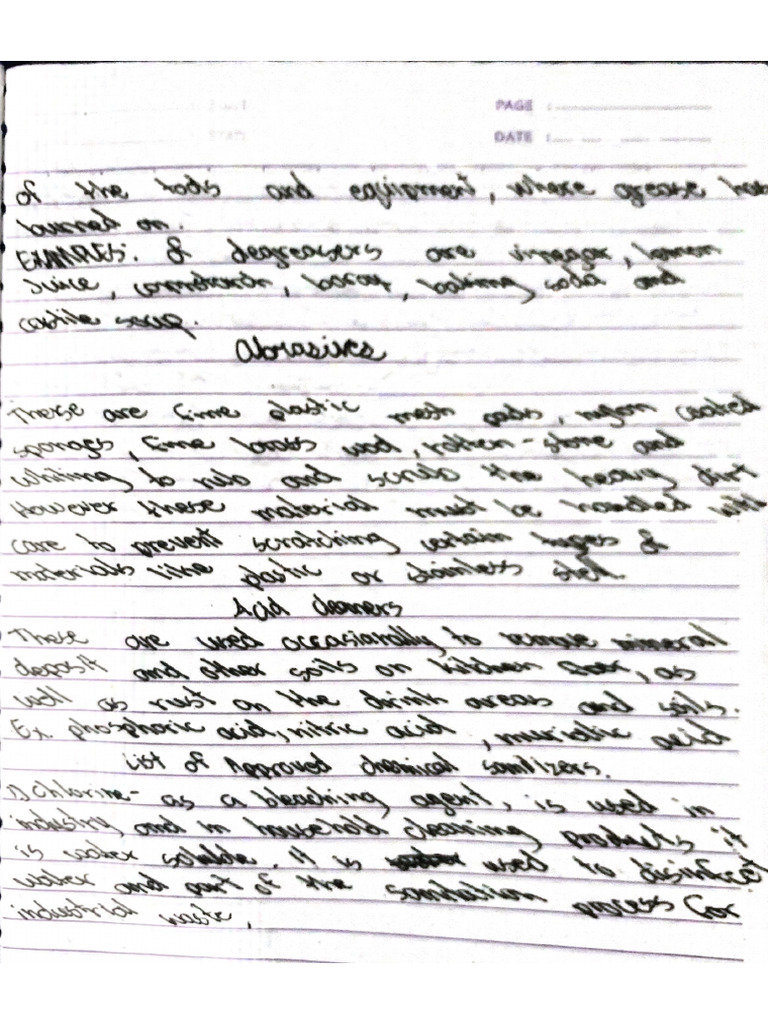 PAGE :
DATE :
of the tools and equipment, where grease has
burned on.
EXAMPLES. of degreasers are vinegar, lemon
juice, cornstarch, borax, baking soda and
castile soap.
Abrasives
These are fine plastic mesh pads, nylon coated
sponges, fine brass wool, rotten-stone and
whiting to rub and scrub the heavy dirt
However these material must be handled with
care to prevent scratching certain types of
materials like plastic or stainless steel.
Acid cleaners
These are used occasionally to remove mineral
deposit and other soils on kitchen, as
well as rust on the drink areas and sills.
Ex. phosphoric acid, nitric acid, muriatic acid
List of Approved chemical sanitizers.
1) Chlorine- as a bleaching agent, is used in
industry and in household cleaning products it
is water soluble. It is used to disinfect
water and part of the sanitation process for
industrial waste,